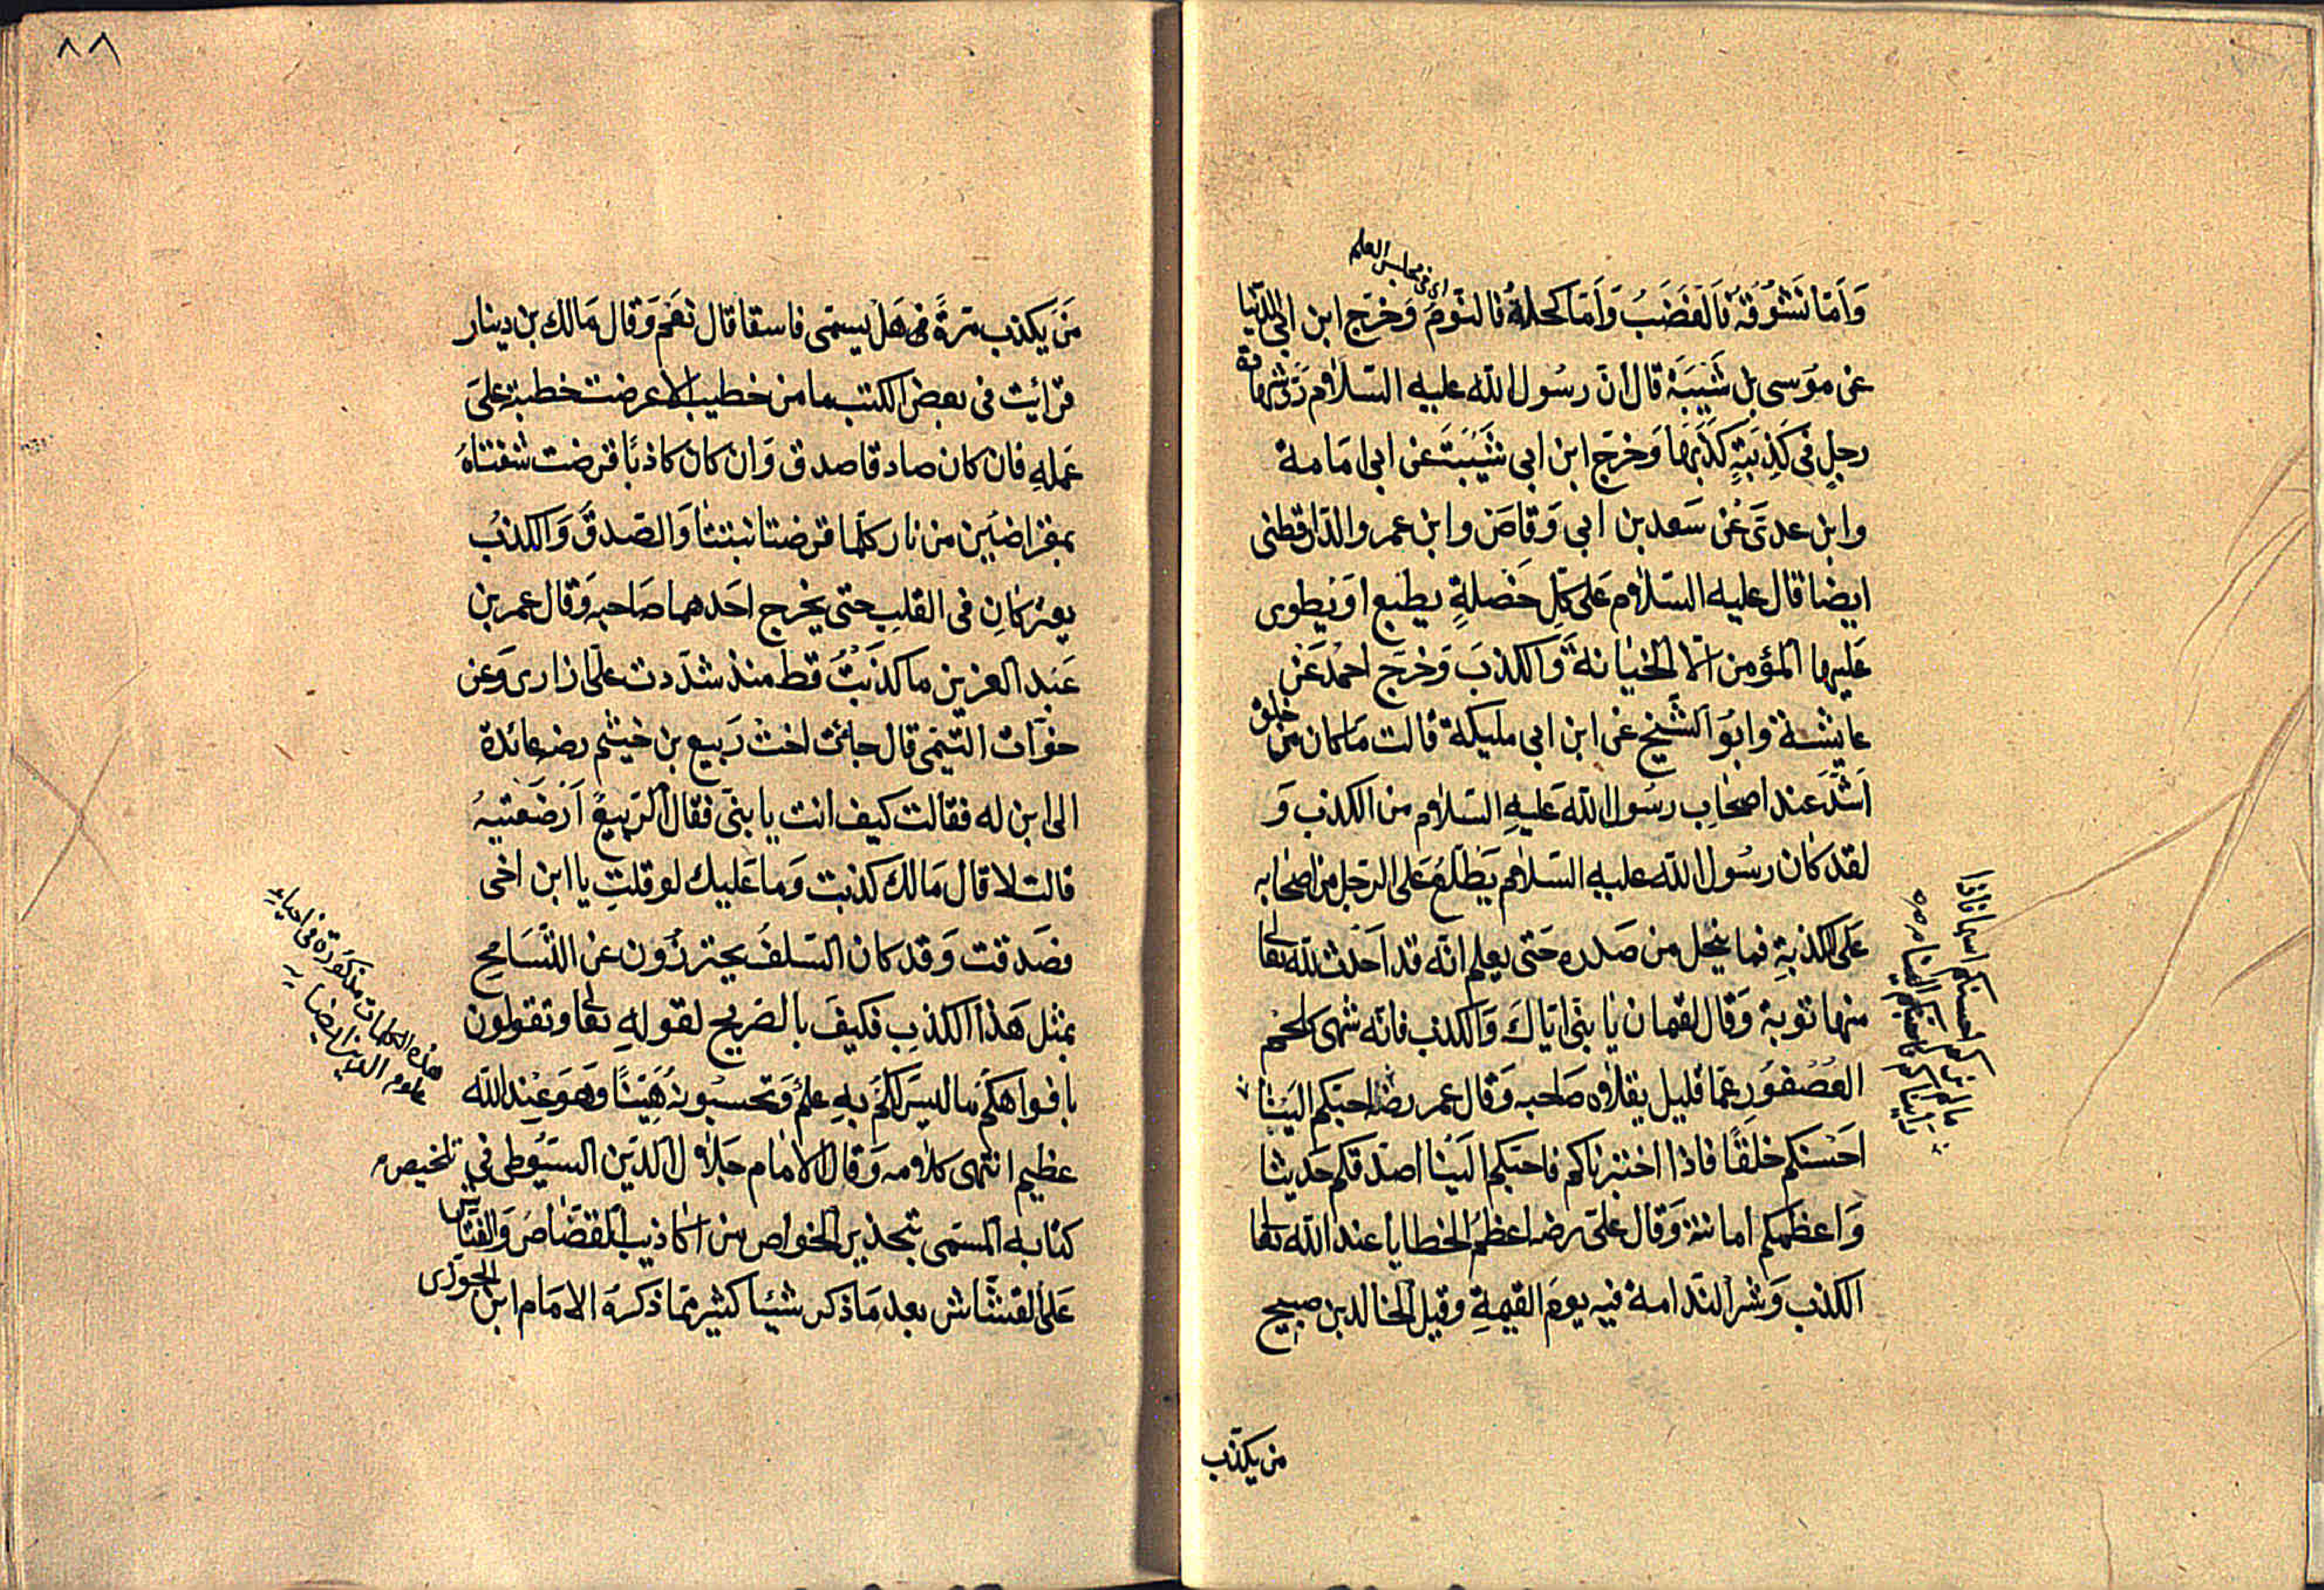 اى فى مجلس العلم
وَاَمّا نَشُوْقُهُ فَالْغَضَبُ وَاَمّا كحلهُ فالنّومُ وَخرّج ابن ابى الدّنيا
عن موسى بن شَيْبَةَ قال انّ رسُول الله عليه السّلام رَدّ شهادة
رجلٍ فى كَذِبَةٍ كَذَبَها وَخرّج ابن ابى شَيْبَتَ عن ابى امَامة
وابن عدىّ عَن سَعد بن ابى وَقاصَ وابن عمر والدّارقطنى
ايضا قال عليه السّلام عَلى كلّ خَصْلةٍ يطبع اوَ يطوى
عَليها المؤمن الّا الخيانةَ وَالكذبَ وَخرّج احمْد عَنْ
عايشة وابُو الشّيخ عن ابن ابى مليكة قالت مَا كان من خلق
اَشدّ عند اصحَابِ رسُول الله عَليهِ السّلام من الكذب وَ
لقد كان رسُول الله عليه السّلام يَطّلعُ عَلى الرّجل من اصحابه
عَلى الكذبةِ فما ينحل من صَدره حَتى يعلم انّه قد اَحْدث لله تعالى
منها توبة وَقال لقمان يا بنىّ ايّاكَ وَالكذب فانّه شهىّ كلحم
العُصْفورِ عمّا قليل يقلاه صَاحبه وَقال عمر رضـ احبّكم الينا
احَسنكم خلقًا فاذا اختبرناكم فاحبّكم الَينا اصدقكم حَديثا
وَاعظمكم امانتة وَقال علىّ رضـ اعظمُ الخطايا عند الله تعالى
الكذب وَشر النّدامة فيه يومَ القيمةِ وقيل لخالد بن صبيح
من يكذب
مَنَ يَكذب مَرةً هَل يسمّى فاسقا قال نعَم وَقال مَالك بن دينار
قرائت فى بعض الكتب ما من خطيب الّا عرضت خطبته عَلىَ
عَملهِ فان كان صادقا صدق وَان كان كاذبًا قرضت شفتاهُ
بمقراضَين من نار كلّما قرضتا نبتتا وَالصّدقُ وَالكذبُ
يعتركانِ فى القلبِ حتى يخرج احَدهما صَاحبه وَقال عمر بن
عَبد العزيز ما كذَبتُ قط منذ شدّدت علىّ ازارى وَعن
خوّات التّيمى قال جائت اخت رَبيع بن خيثم رضـ عائدة
الى ابن له فقالت كيف انت يا بنىّ فقال الرّبيعُ اَرْضَعْتيهُ
قالت لا قال مَا لك كذبت وَما عَليك لو قلتِ يا ابن اخى
فصَدقت وَقد كان السّلفُ يحترزُون عن التّسَامح
بمثل هَذا الكذبِ فكيفَ بالصّريح لقولهِ تعالى وتقولون
بافواهكم مَا ليسَ لكمَ بهِ علمٌ وَتحسبُونهُ هَيّنًا وَهوَ عند الله
عظيم انتهى كلامه وَقال الامام جَلال الدّين السّيُوطى فى تلخيص
كتابه المسَمى بتحذير الخواص من اكاذيب القصّاصَ وَالقتّاس
عَلى القشّاش بعد مَا ذكر شيئا كثير ممّا ذكرهُ الامَام ابن الجوزى
هذه الكلمات مذكورة فى احياء
علوم الدّين ايضا
٨٨